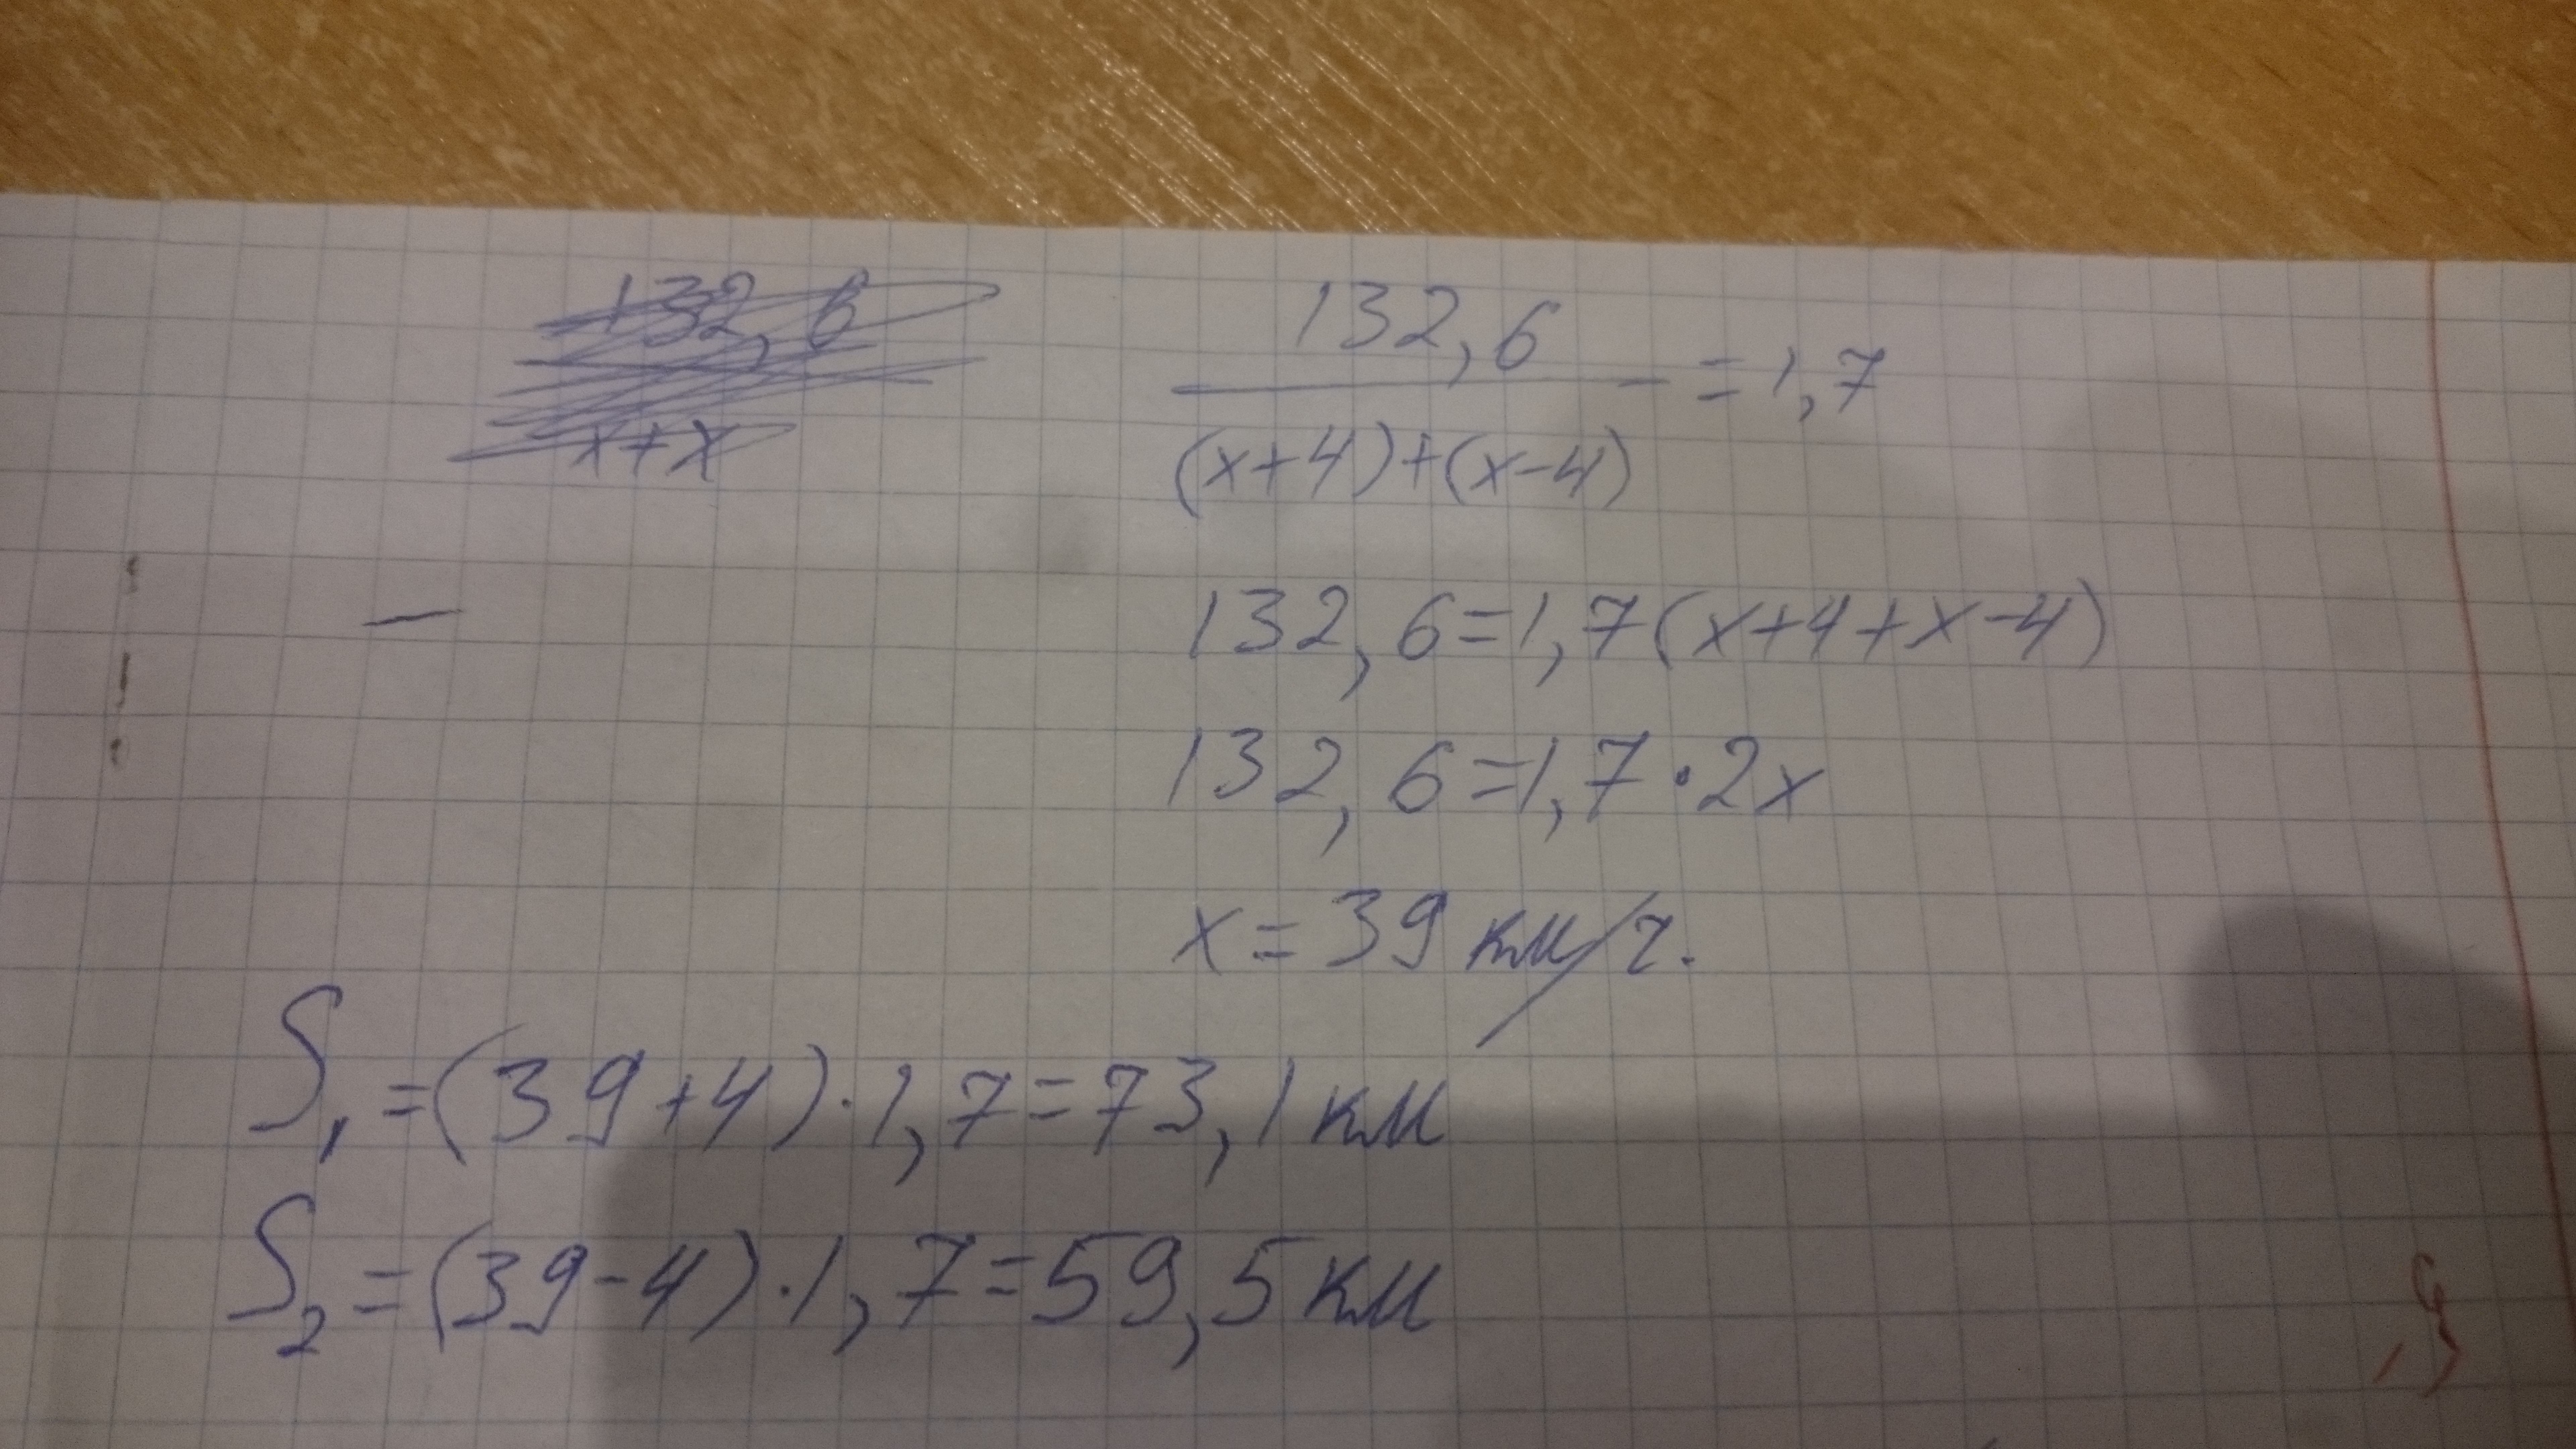 132,6
x+x
132,6
(x+4)+(x-4) = 1,7
132,6=1,7(x+4+x-4)
132,6=1,7·2x
x=39 км/ч.
S₁=(39+4)·1,7=73,1 км
S₂=(39-4)·1,7=59,5 км